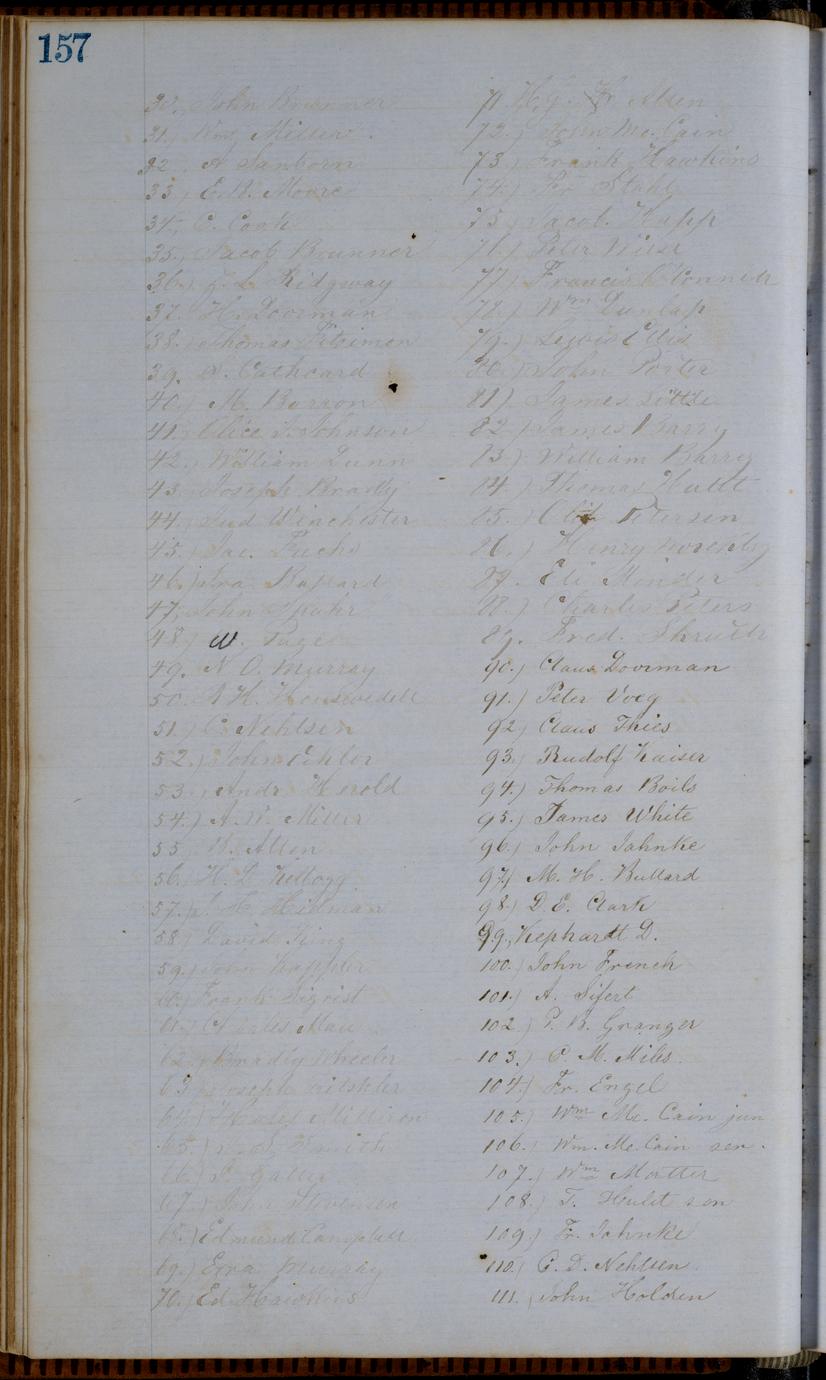 157
30. John Brunner
31. Wm. Miller.
32. A Sanborn
33.) E.B. Moore
34. C. Cook
35. Jacob Brunner
36.) J. L. Ridgway
37. H. Doorman
38. Thomas Fitsimon
39. A. Cathcard
40.) M. Borron
41. Alice S. Johnson
42. William Dunn
43. Joseph Brady
44. Jud Winchester
45. Jac. Fuchs
46.) Ira
47. John Spahr
48) W. Page
49. N O. Murray
50. A H.
51.) C. Nehlsen
52.) John Ethler
53.) Andr. Herold
54.) A. W. Miller
55. B. Allen
56. H. L. Kellogg
57.) Hidman
58) David King
59.) John Kappler
60.) Frank Sigrist
61.) Charles Mau
62.) Bradly Wheeler
63. Joseph
64.) Moses Millison
65.) Smith
66.)
67.) John Stevenson
68.) Edmund Campbell
69.) Ezra Murray
70. Ed. Hawkins
71. H. G. Fr. Allen
72.) John Mc. Cain
73.) Frank Hawkins
74.) Fr. Stahl
75.) Jacob. Kapp
76.) Peter Wiese
77.) Francis O'Conner
78.) Wm Dunlap
79.) Lewis Ellis
80.) John Porter
81). James Little
82.) James Barry
83.) William Barry
84.) Thomas Hullt
85.) Petersen
86.) Henry
87. Eli Minder
88.) Charles Peters
89. Fred.
90.) Claus Doorman
91.) Peter Voeg
92) Claus Thies
93.) Rudolf Kaiser
94.) Thomas Boils
95.) James White
96.) John Jahnke
97.) M. H. Bullard
98.) D E. Clark
99., Kephardt D.
100.) John French
101.) A. Sifert
102.) P. B. Granger
103.) C. M. Miles.
104.) Fr. Engel
105.) Wm Mc. Cain jun
106.) Wm. Mc. Cain sen.
107.) Wm Mortter
108.) T. Huldt sen
109.) Fr. Jahnke
110.) C. D. Nehlsen
111. John Holden